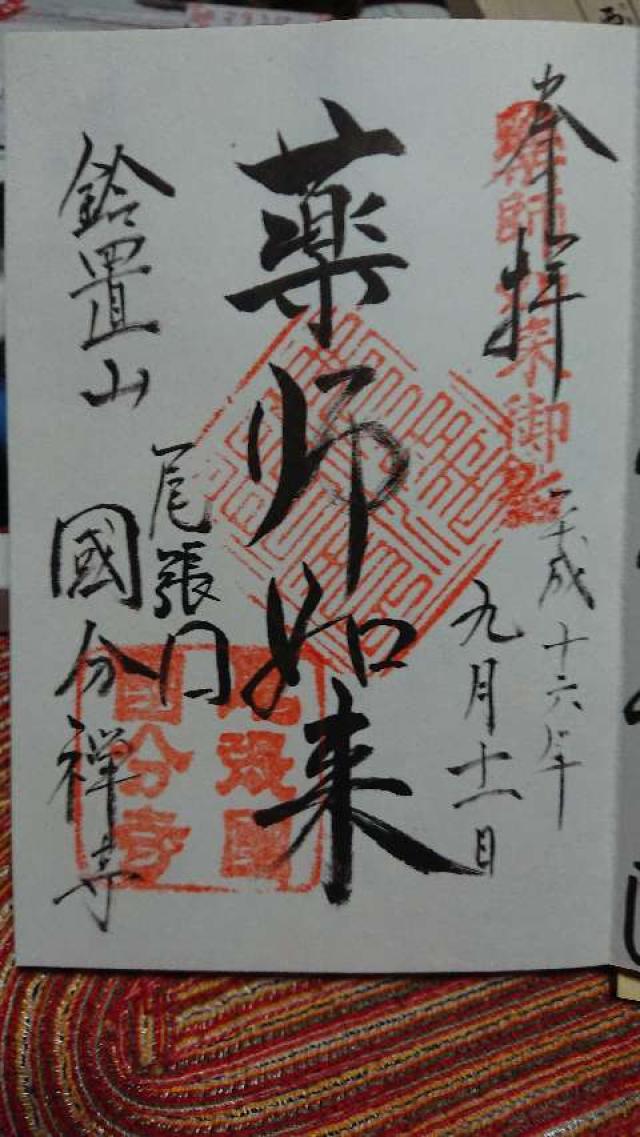 奉拝
平成十六年
九月十一日
薬師如来
尾張
鈴置山
國分禅寺
薬師如来御
尾張國
国分寺